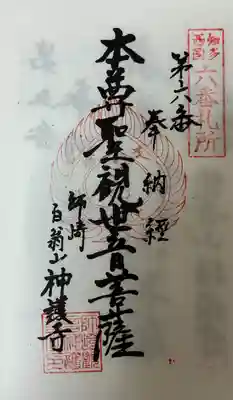 知多
西国
六番札所
第六番
奉納経
本尊聖観世音菩薩
師崎
白翁山神護寺